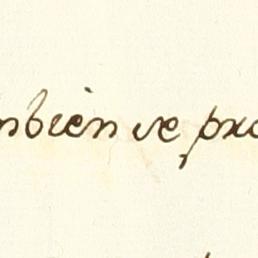 mbien se pro